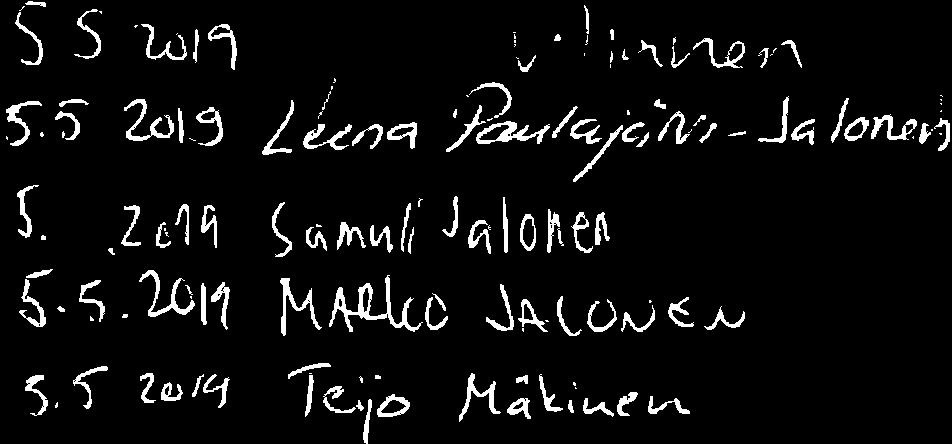 5 5 2019
5.5 2019 Leena Paulajärvi-Jalonen
5. .2019 Samuli Jalonen
5.5.2019 MARKO JALONEN
5.5 2019 Teijo Mäkinen